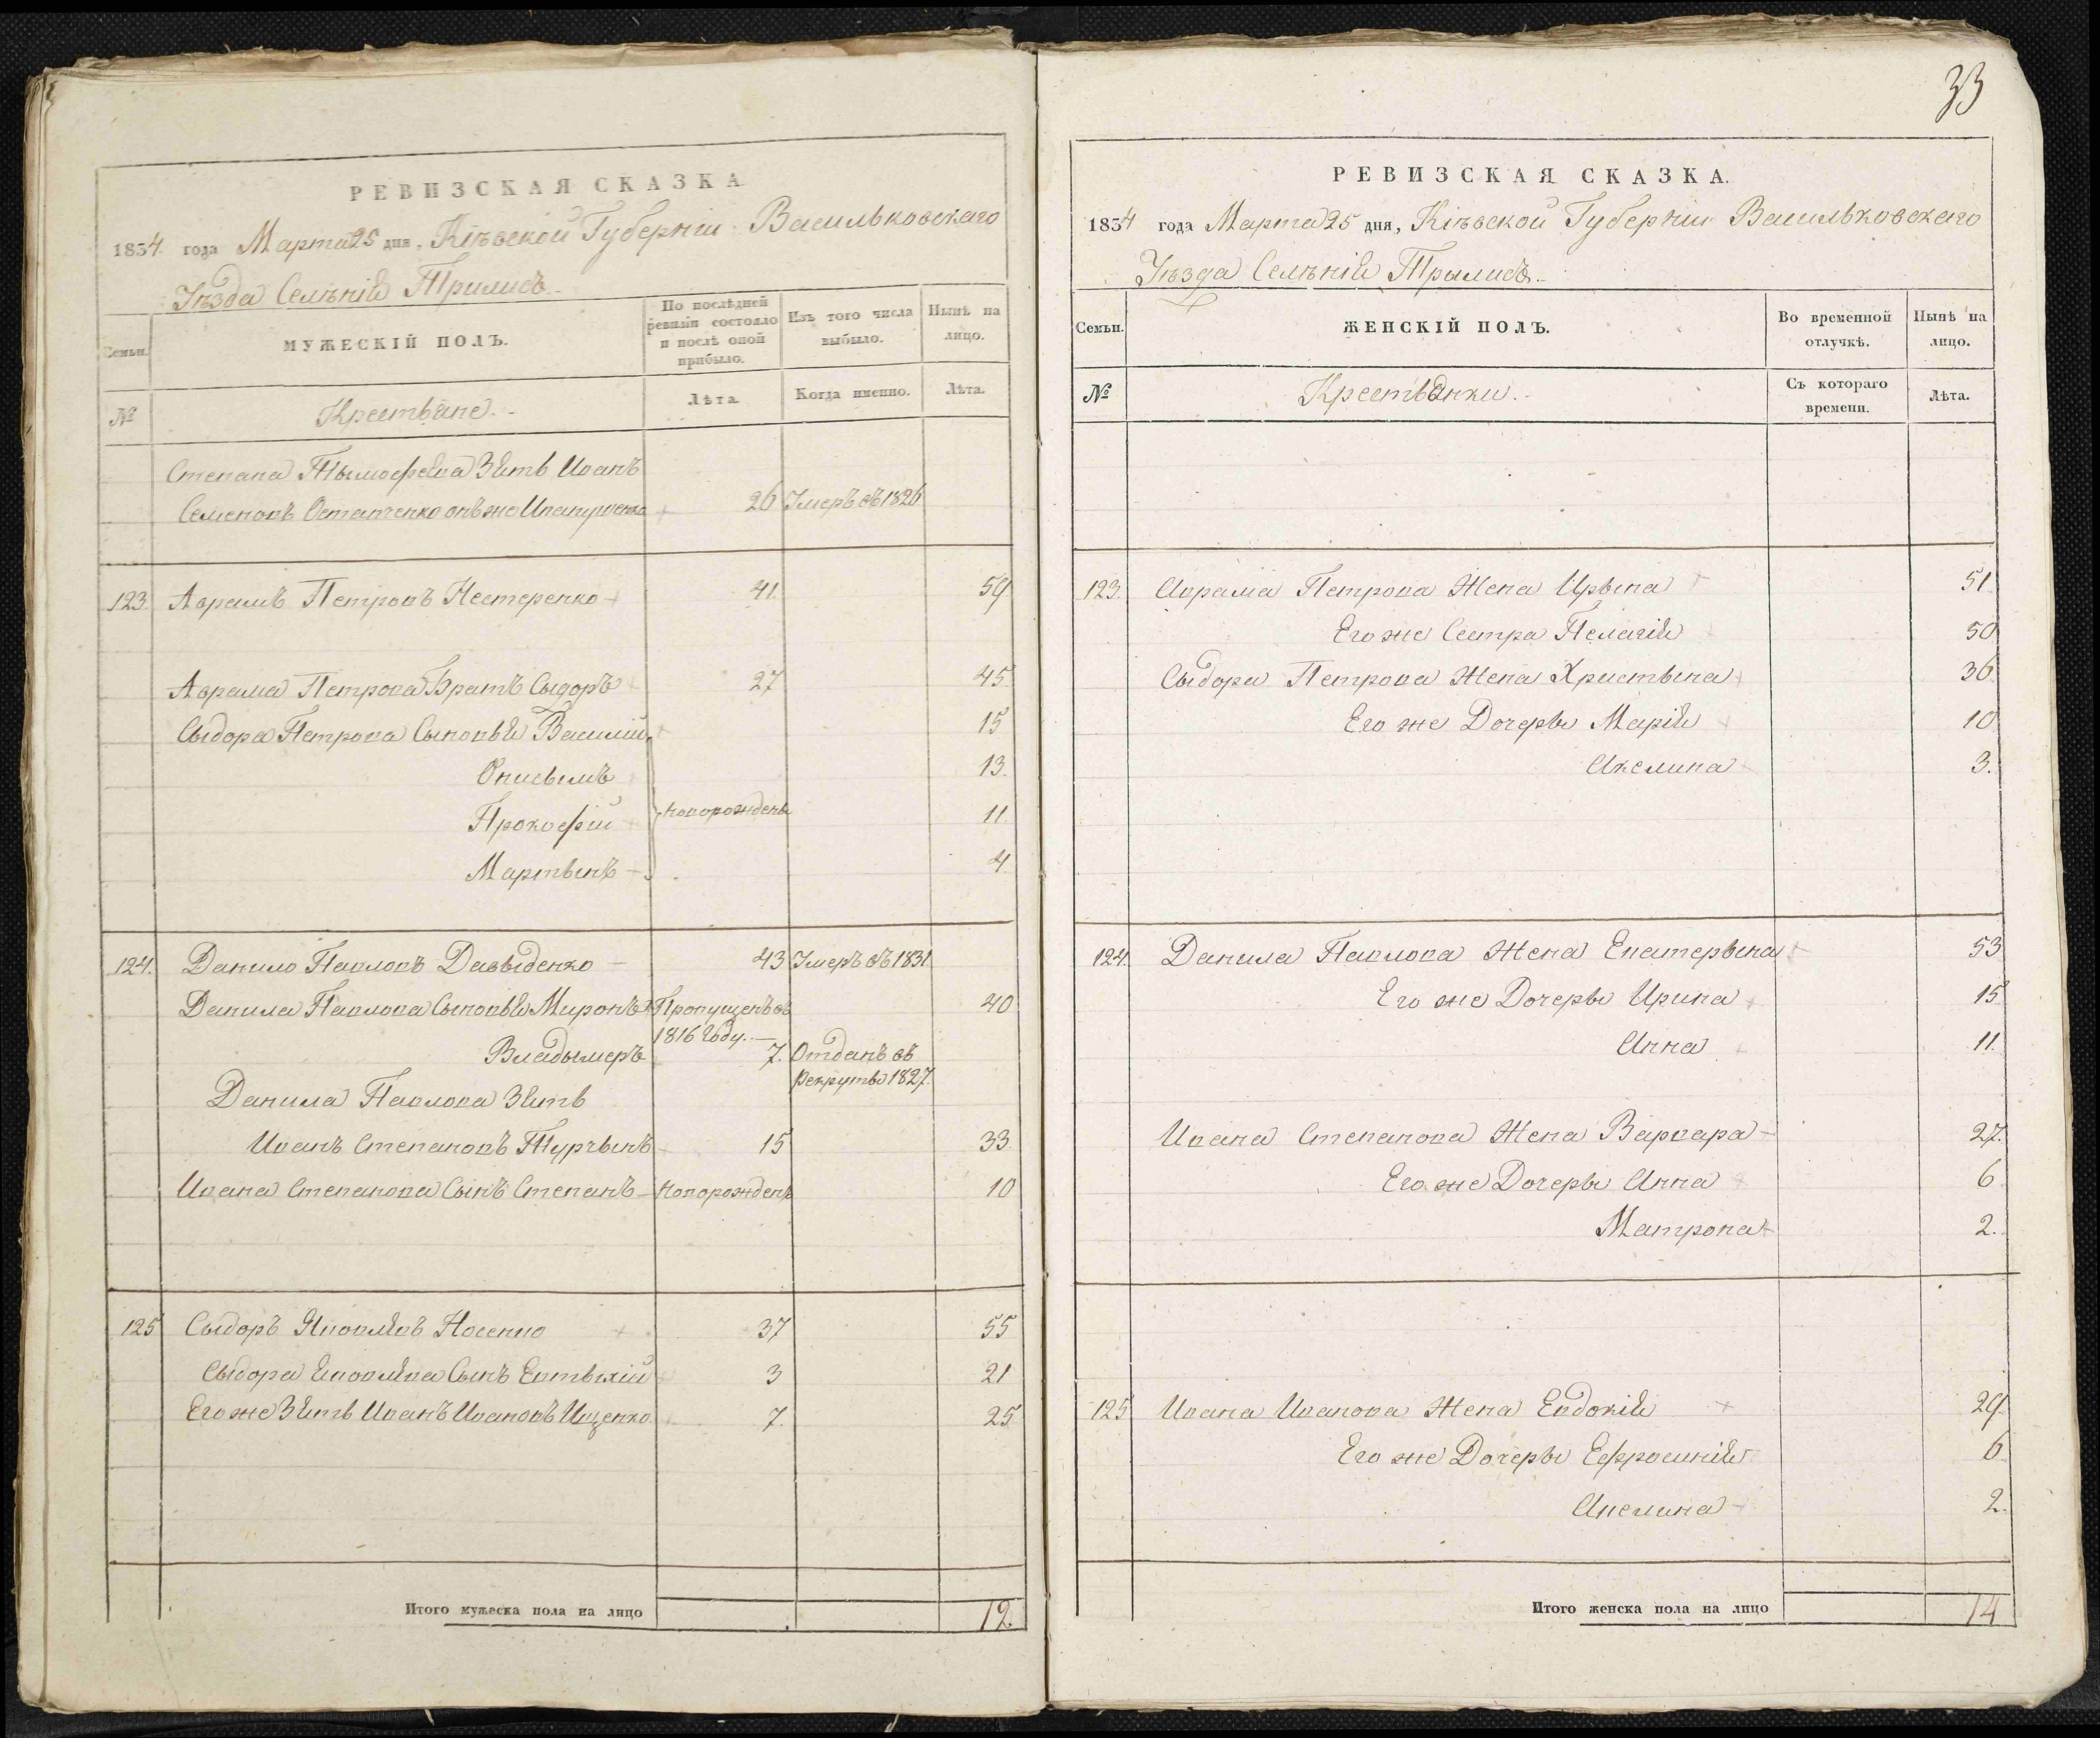 РЕВИЗСКАЯ СКАЗКА
1834 года Марта 25 дня, Кіевской Губерніи Васильковскаго
Уѣзда Селѣнія Трилисъ
Семьи.
МУЖЕСКІЙ ПОЛЪ.
По послѣдней ревизіи состояло и послѣ оной прибыло.
Изъ того числа выбыло.
Нынѣ на лицо.
№
Крестьяне.
Лѣта
Когда именно.
Лѣта.
Степана Тымофеева Зять Иванъ
Семеновъ Остапченко онъ же 26 Умеръ въ 1826
123. Аврамъ Петровъ Нестеренко 41. 59
Аврама Петрова Братъ Сыдоръ 27 45
Сыдора Петрова Сыновья Василий 15
Онисымъ 13.
Прокофій новорождены 11.
Мартынъ 4.
124. Данило Павловъ Давыденко 43 Умеръ въ 1831.
Данила Павлова Сыновья Миронъ Пропущенъ въ 1816 Году. 40
Владымеръ 7. Отданъ въ рекруты 1827.
Данила Павлова Зять
Иванъ Степановъ Турчынъ 15 33.
Ивана Степанова Сынъ Степанъ Новорожденъ 10
125 Сыдоръ Яковлевъ Носенко 37 55
Сыдора Яковлева Сынъ Евтыхій 3 21
Его же Зять Иванъ Ивановъ Ищенко 7. 25
Итого мужеска пола на лицо 12.
33
РЕВИЗСКАЯ СКАЗКА.
1834 года Марта 25 дня, Кіевской Губерніи Васильковскаго
Уѣзда Селѣнія Трылисъ
Семьи.
ЖЕНСКІЙ ПОЛЪ.
Во временной отлучкѣ.
Нынѣ на лицо.
№
Крестьянки.
Съ котораго времени.
Лѣта.
123. Аврама Петрова Жена Ирына 51
Его же Сестра Пелагія 50
Сыдора Петрова Жена Христына 36
Его же Дочеры Марія 10
Акелина 3.
124. Данила Павлова Жена Екатерына 53
Его же Дочеры Ирина 15
Анна 11.
Ивана Степанова Жена Варвара 27.
Его же Дочеры Анна 6
Матрона 2.
125 Ивана Иванова Жена Евдокія 29.
Его же Дочеры Ефросинія 6
Акелина 2.
Итого женска пола на лицо 14